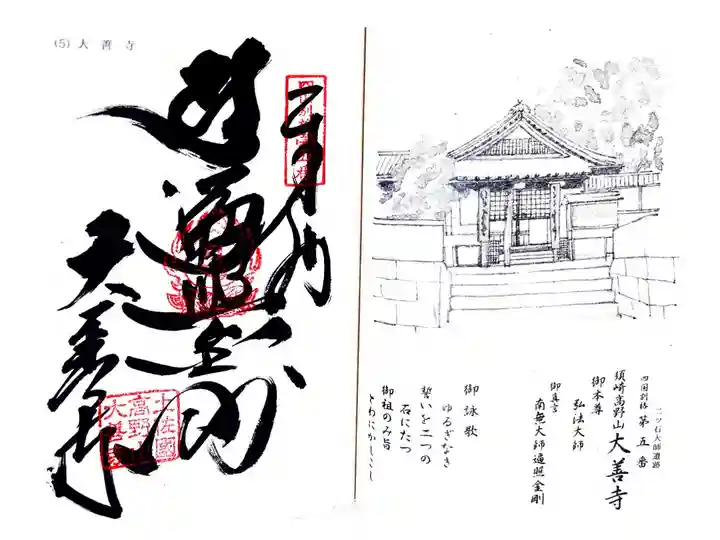 (5) 大善寺
奉納
遍照金剛
大善寺
土佐國
高野山
大善寺
二ツ石大師遺跡
四国別格 第五番
須崎高野山 大善寺
御本尊
弘法大師
御真言
南無大師遍照金剛
御詠歌
ゆるぎなき
誓いを二つの
石にたつ
御祖のみ旨
とわにかしこし